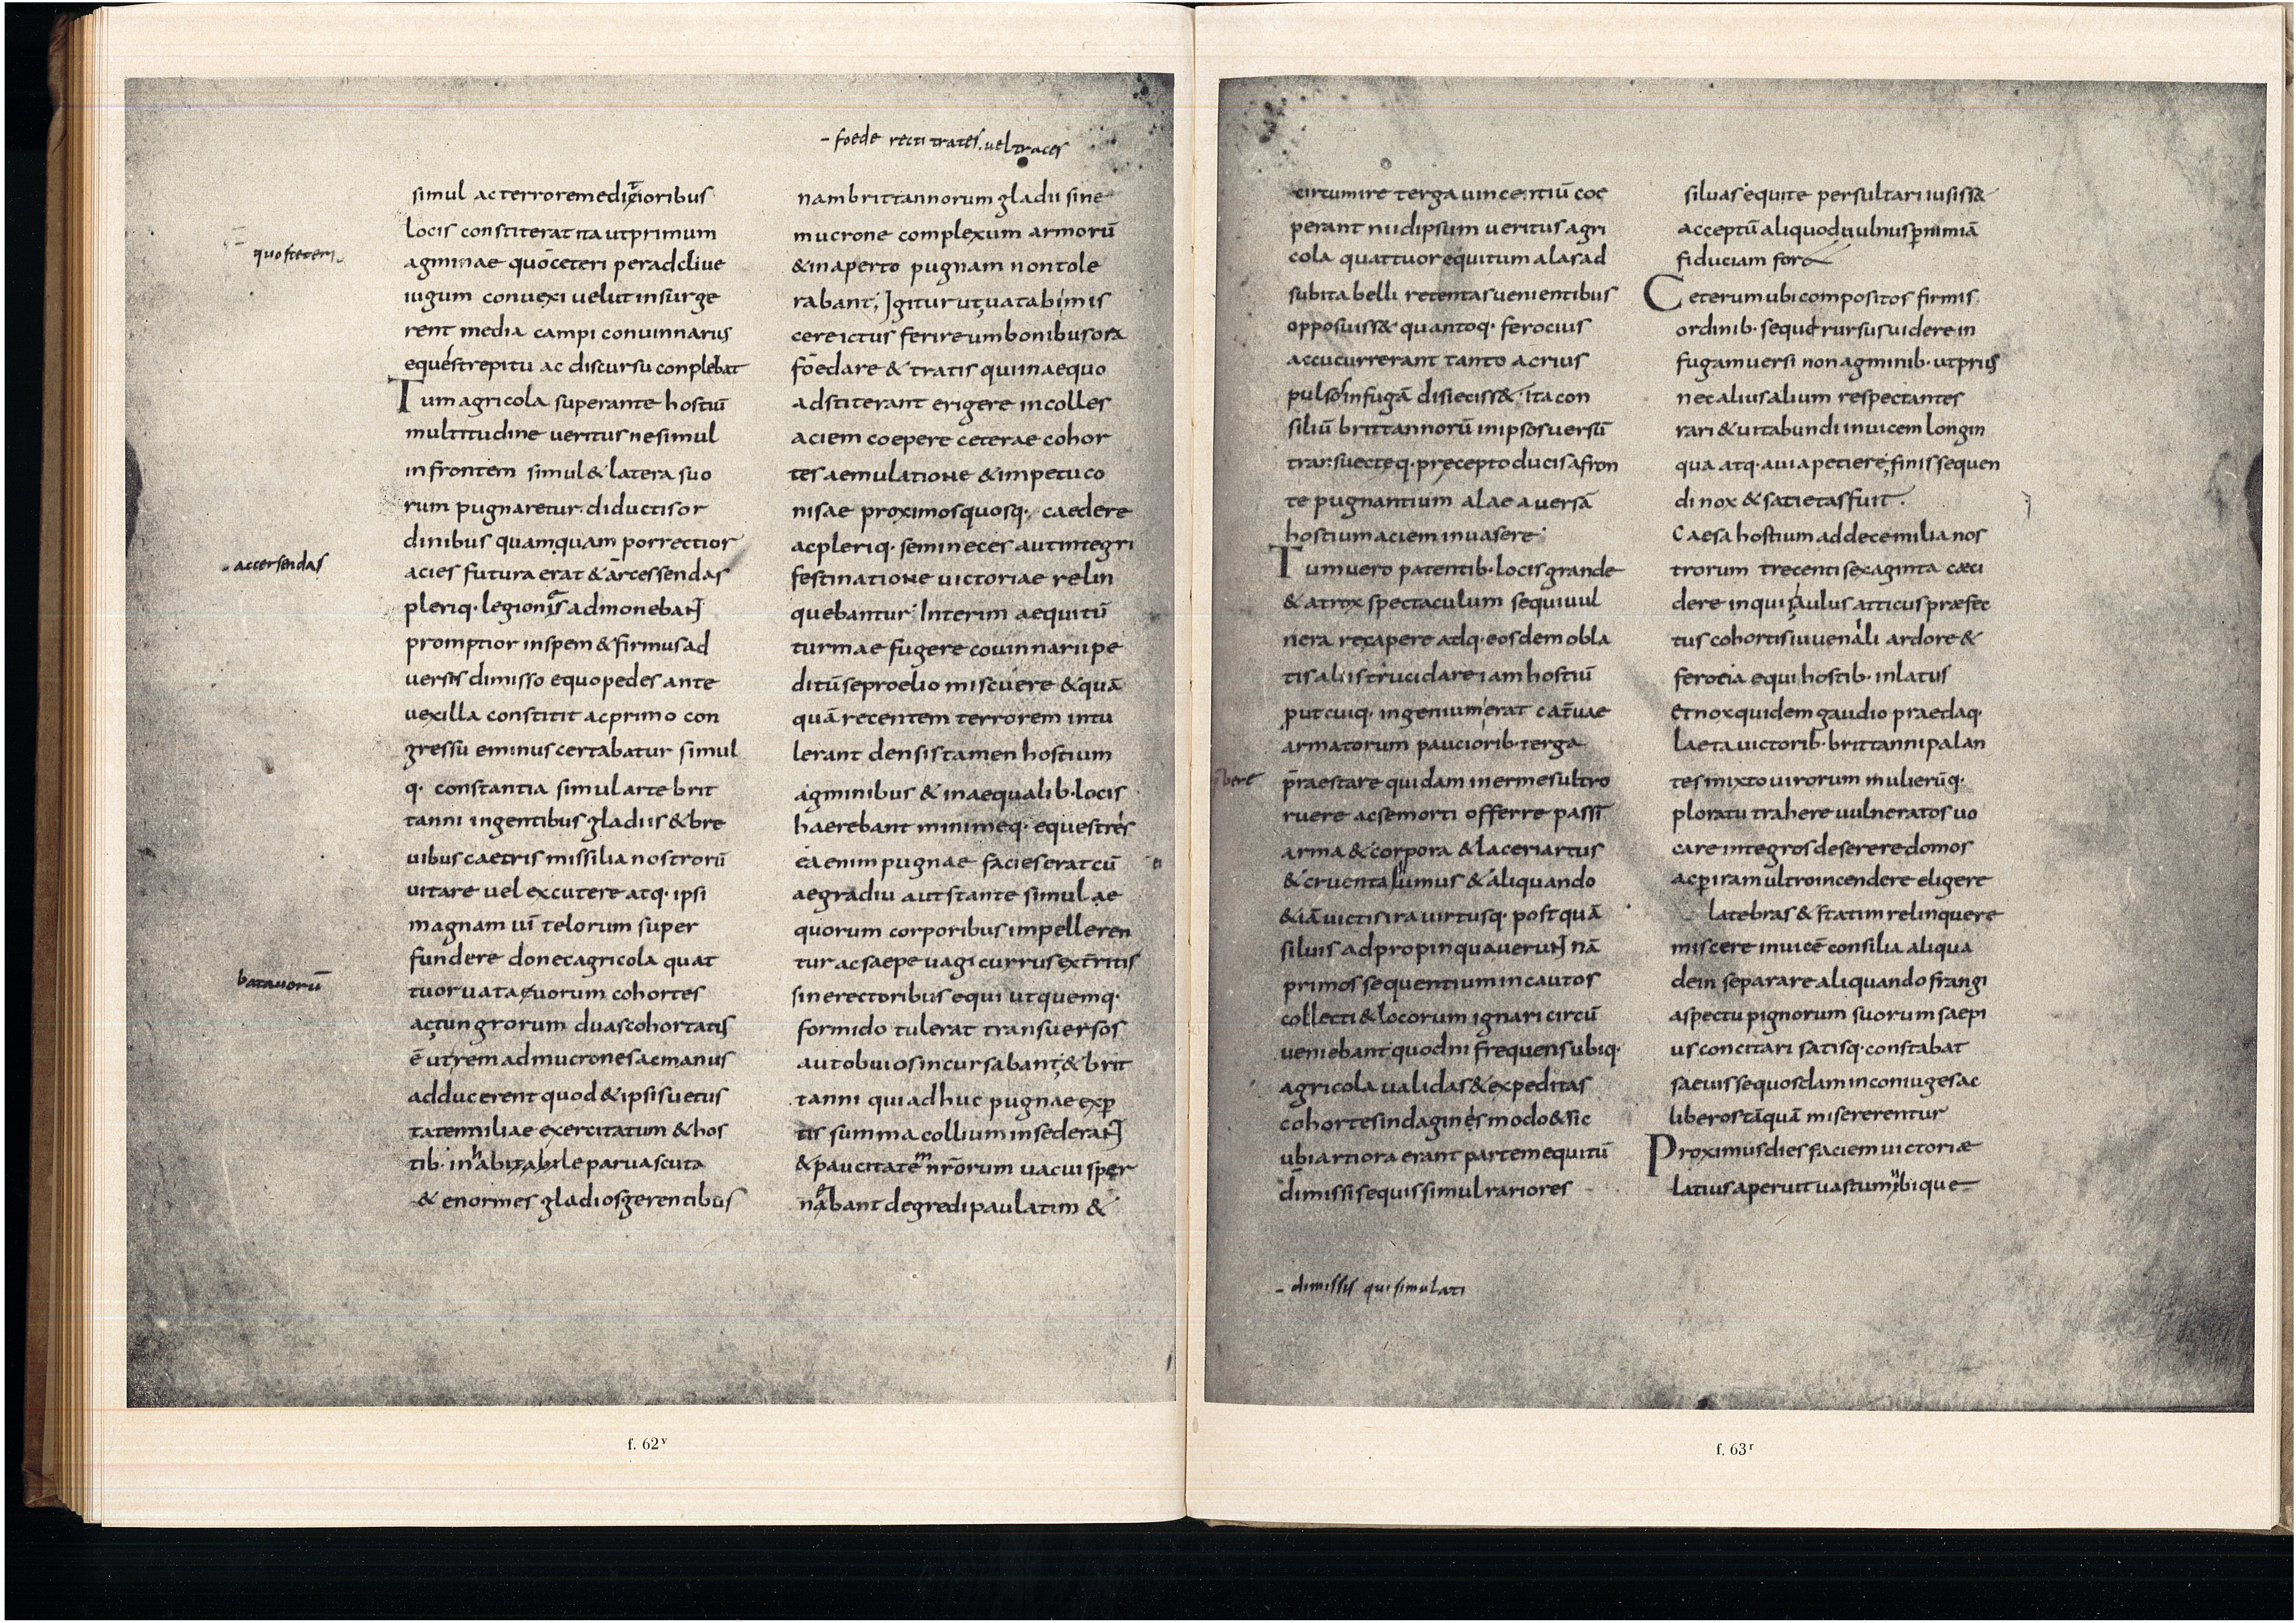 - foede recti trates. uel traces
simul ac terrorem edigioribus
locis constiterat ita ut primum
quo ceteri
agminae quo ceteri per adcliue
iugum conuexi uelut insurge
rent media campi conuinnarius
eques strepitu ac discursu conplebat
Tum agricola superante hostiū
multitudine ueritus ne simul
in frontem simul & latera suo
rum pugnaretur. diductis or
dinibus quamquam porrectior
- accersendas
acies futura erat & arcessendas
pleriq. legiones admonebant
promptior in spem & firmus ad
versis dimisso equo pedes ante
uexilla constitit ac primo con
gressu eminus certabatur simul
q. constantia simul arte brit
tanni ingentibus gladiis & bre
uibus caetris missilia nostrorū
uitare uel excutere atq. ipsi
magnam uī telorum super
fundere donec agricola quat
batauorū
tuor uataeuorum cohortes
ac tungrorum duas cohortatus
ē ut rem ad mucrones ac manus
adducerent quod & ipsis uetus
tatem miliae exercitatum & hos
tib. inhabitabile parua scuta
& enormes gladios gerentibus
nam brittannorum gladii sine
mucrone complexum armorū
& in aperto pugnam non tole
rabant; Igitur ut uatabi mis
cere ictus ferire umbonibus ora
foedare & tratis qui in aequo
adstiterant erigere in colles
aciem coepere ceterae cohor
tes aemulatione & impetu co
nisae proximos quosq. caedere
ac pleriq. semineces aut integri
festinatione victoriae relin
quebantur. Interim aequitū
turmae fugere couinnarii pe
ditū se proelio miscuere & quā
quā recentem terrorem intu
lerant densis tamen hostium
agminibus & inaequalib. locis
haerebant minimeq. equestres
ea enim pugnae facies erat cū
aegradiu aut stante simul ae
quorum corporibus impelleren
tur ac saepe uagi currus extritis
sine rectoribus equi ut quemq.
formido tulerat transuersos
aut obuios incursabant; & brit
tanni qui adhuc pugnae exp
tis summa collium insederant
& paucitatem nrōrum uacui sper
nabant degredi paulatim &
circumire terga uincentiū coe
perant ni id ipsum ueritus agri
cola quattuor equitum alas ad
subita belli retentas uenientibus
opposuiss& quantoq. ferocius
accucurrerant tanto acrius
pulsos in fugā disieciss& ita con
siliū brittannorū in ipsos uersū
transuecteq. precepto ducis a fron
te pugnantium alae auersā
hostium aciem inuasere
Tum uero patentib. locis grande
& atrox spectaculum sequi uul
nera recapere atq. eosdem obla
tis aliis trucidare iam hostiū
put cuiq. ingenium erat cateruae
armatorum pauciorib. terga
praestare quidam inermes ultro
ruere ac se morti offerre passī
arma & corpora & laceri artus
& cruenta humus & aliquando
& iā uictis ira uirtusq. post quā
siluis adpropinquauerunt nā
primos sequentium incautos
collecti & locorum ignari circū
ueniebant quod ni frequens ubiq.
agricola ualidas & expeditas
cohortes indagines modo & sic
ubi artiora erant partem equitū
dimissis equis simul rariores
- dimissis qui simulati
siluas equite persultari iusiss&
acceptū aliquod uulnus p nimiā
fiduciam for&
Ceterum ubi compositos firmis
ordinib. sequi rursus uidere in
fugam uersi non agminib. ut prius
nec alius alium respectantes
rari & uitabundi inuicem longin
qua atq. auia petiere; finis sequen
di nox & satietas fuit.
Caesa hostium ad decem milia nos
trorum trecenti sexaginta cæci
dere in quis aulus atticus præfec
tus cohortis iuuenali ardore &
ferocia equi hostib. inlatus
Et nox quidem gaudio praedaq.
laeta uictorib. brittanni palan
tes mixto uirorum mulierūq.
ploratu trahere uulneratos uo
care integros deserere domos
ac p iram ultro incendere eligere
latebras & statim relinquere
miscere inuicē consilia aliqua
dein separare aliquando frangi
aspectu pignorum suorum saepi
us concitari satisq. constabat
saeuisse quosdam in coniuges ac
liberos tāquā misererentur
Proximus dies faciem uictoriæ
latius aperuit uastum ubique
f. 62ᵛ
f. 63ʳ